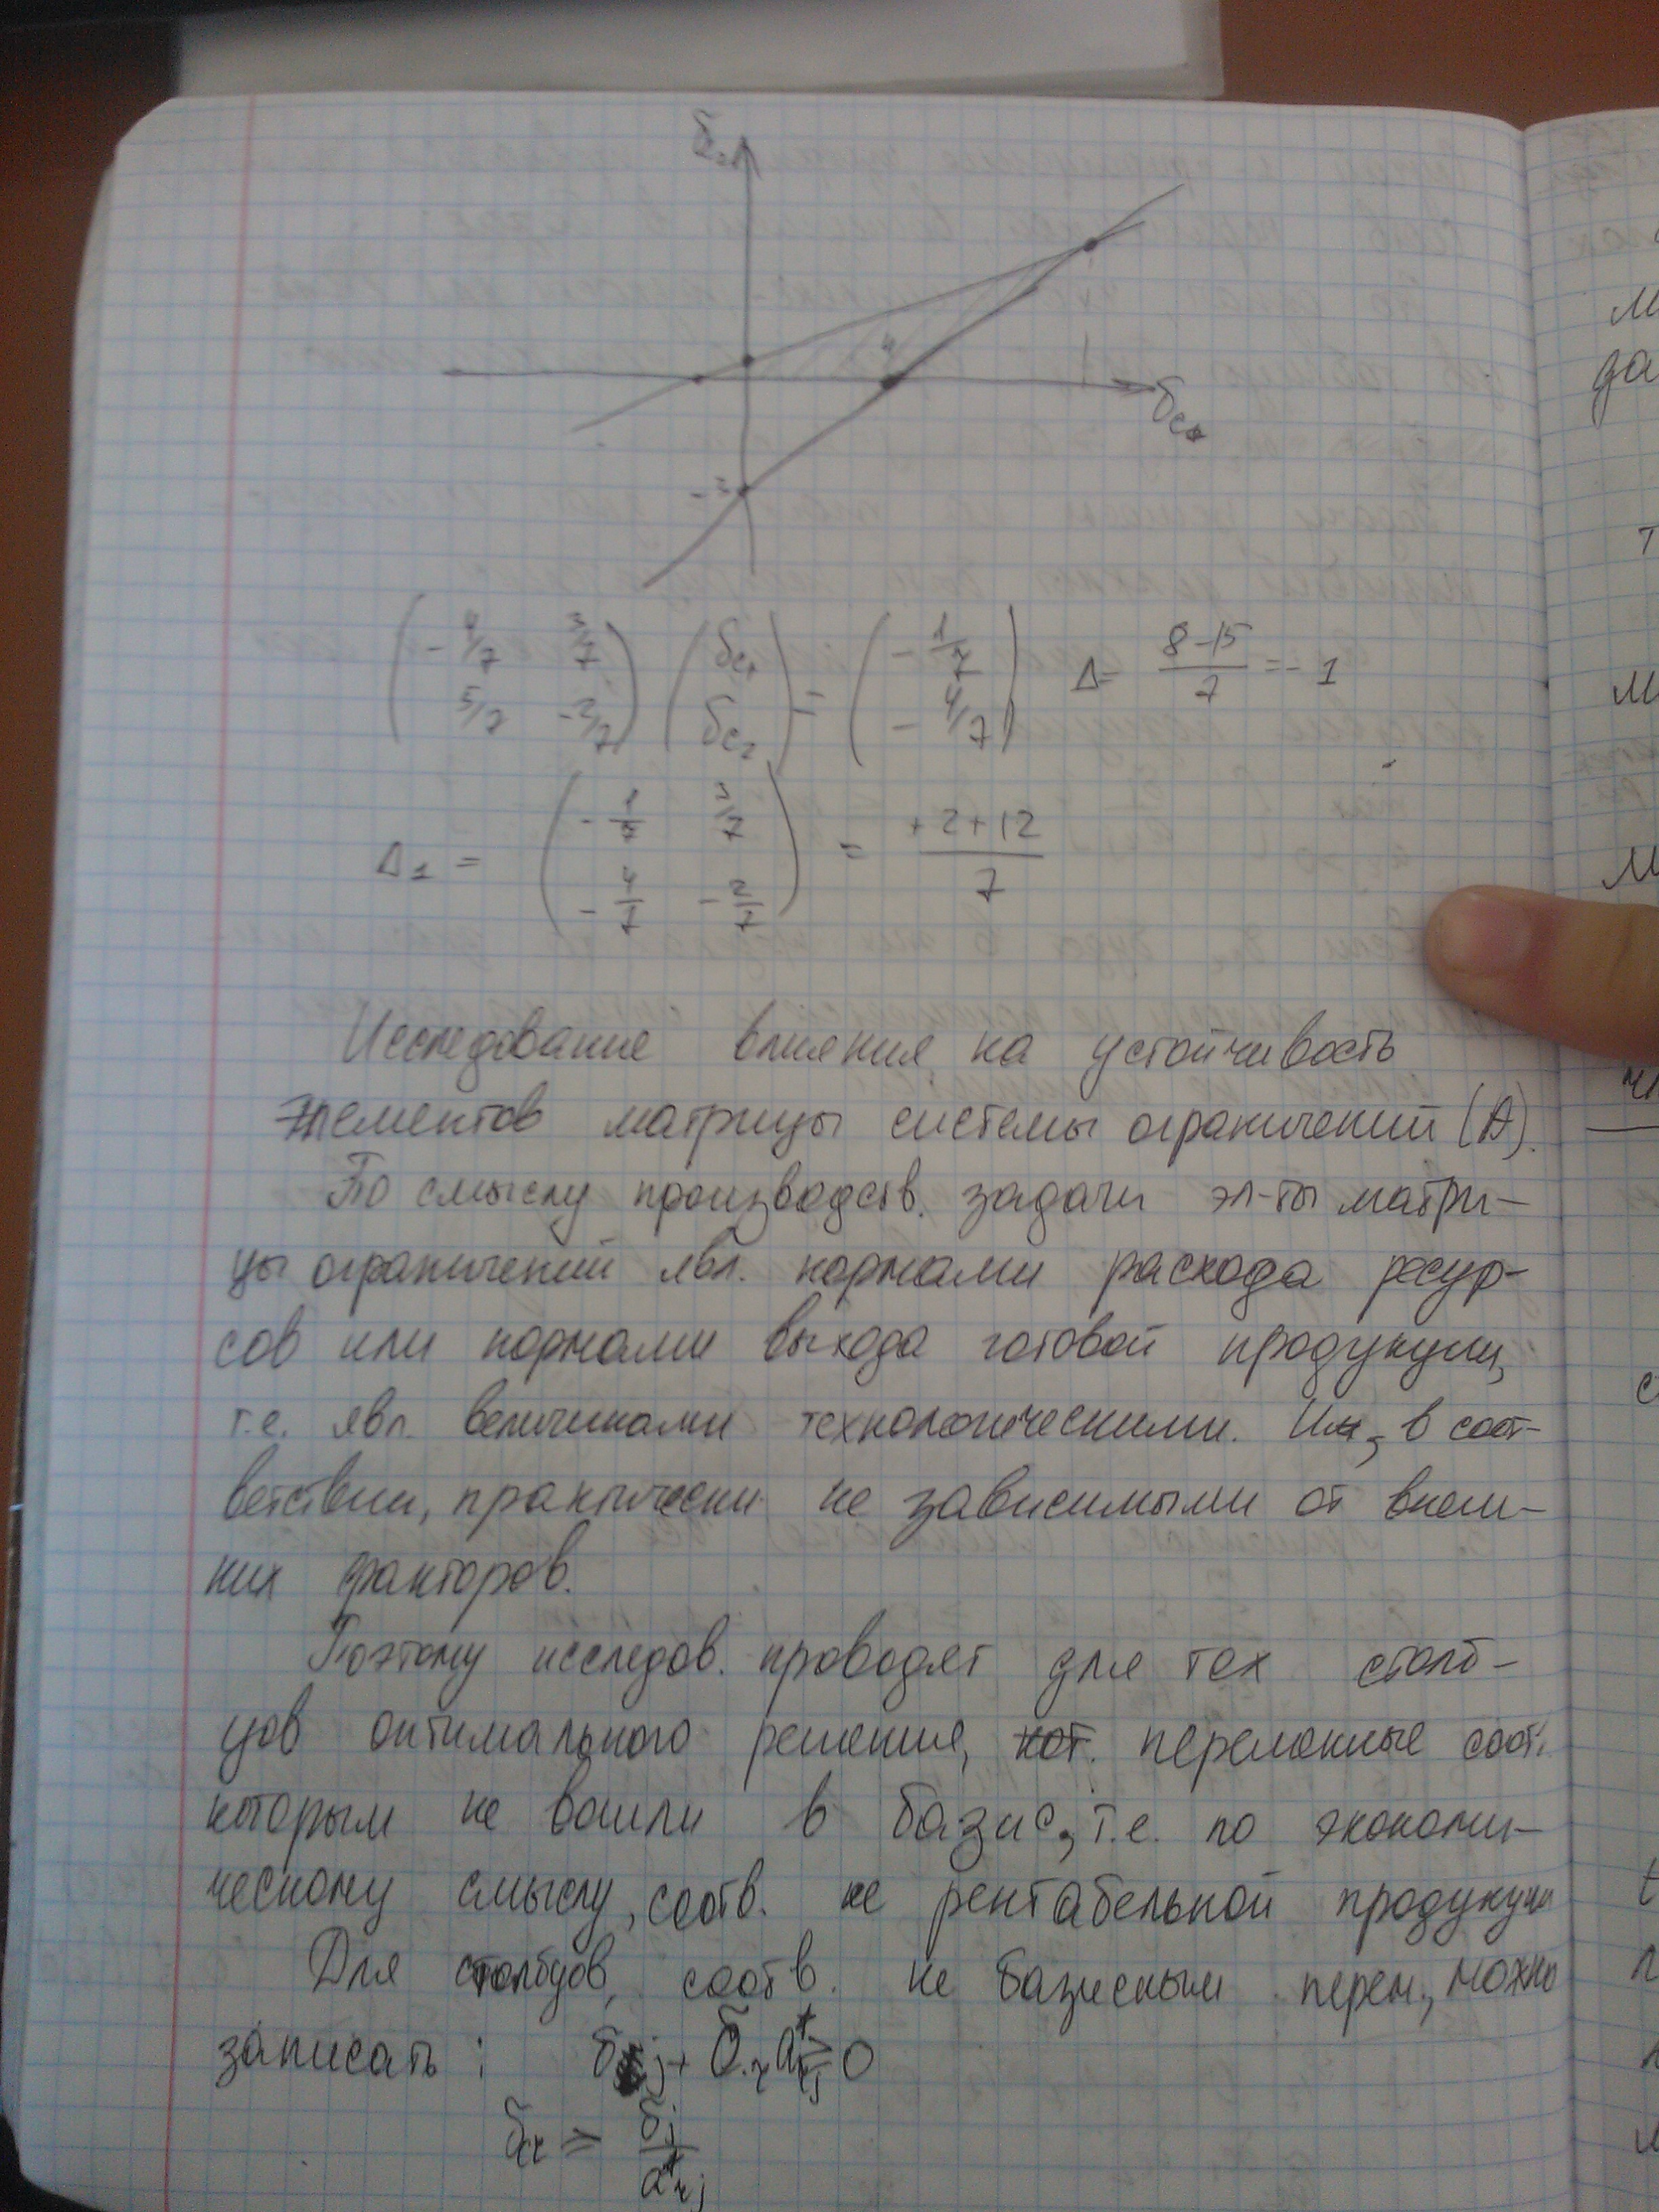 δc₂
4
δc₁
-3
(-4/7 3/7) (δc₁) = (-1/7) Δ= (8-15)/7 = -1
(5/7 -2/7) (δc₂) (-4/7)
Δ₁ = (-1/7 3/7) = (+2+12)/7
(-4/7 -2/7)
Исследование влияния на устойчивость
элементов матрицы системы ограничений (А).
По смыслу производств. задачи эл-ты матри-
цы ограничений явл. нормами расхода ресур-
сов или нормами выхода готовой продукции,
т.е. явл. величинами технологическими. Или, в соот-
ветствии, практически не зависимыми от внеш-
них факторов.
Поэтому исследов. проводят для тех столб-
цов оптимального решения, переменные соот.
которым не вошли в базис, т.е. по экономи-
ческому смыслу, соотв. не рентабельной продукции
Для столбцов, соотв. не базисным перем., можно
записать:
δj
a*rj
м
да
т
м
м